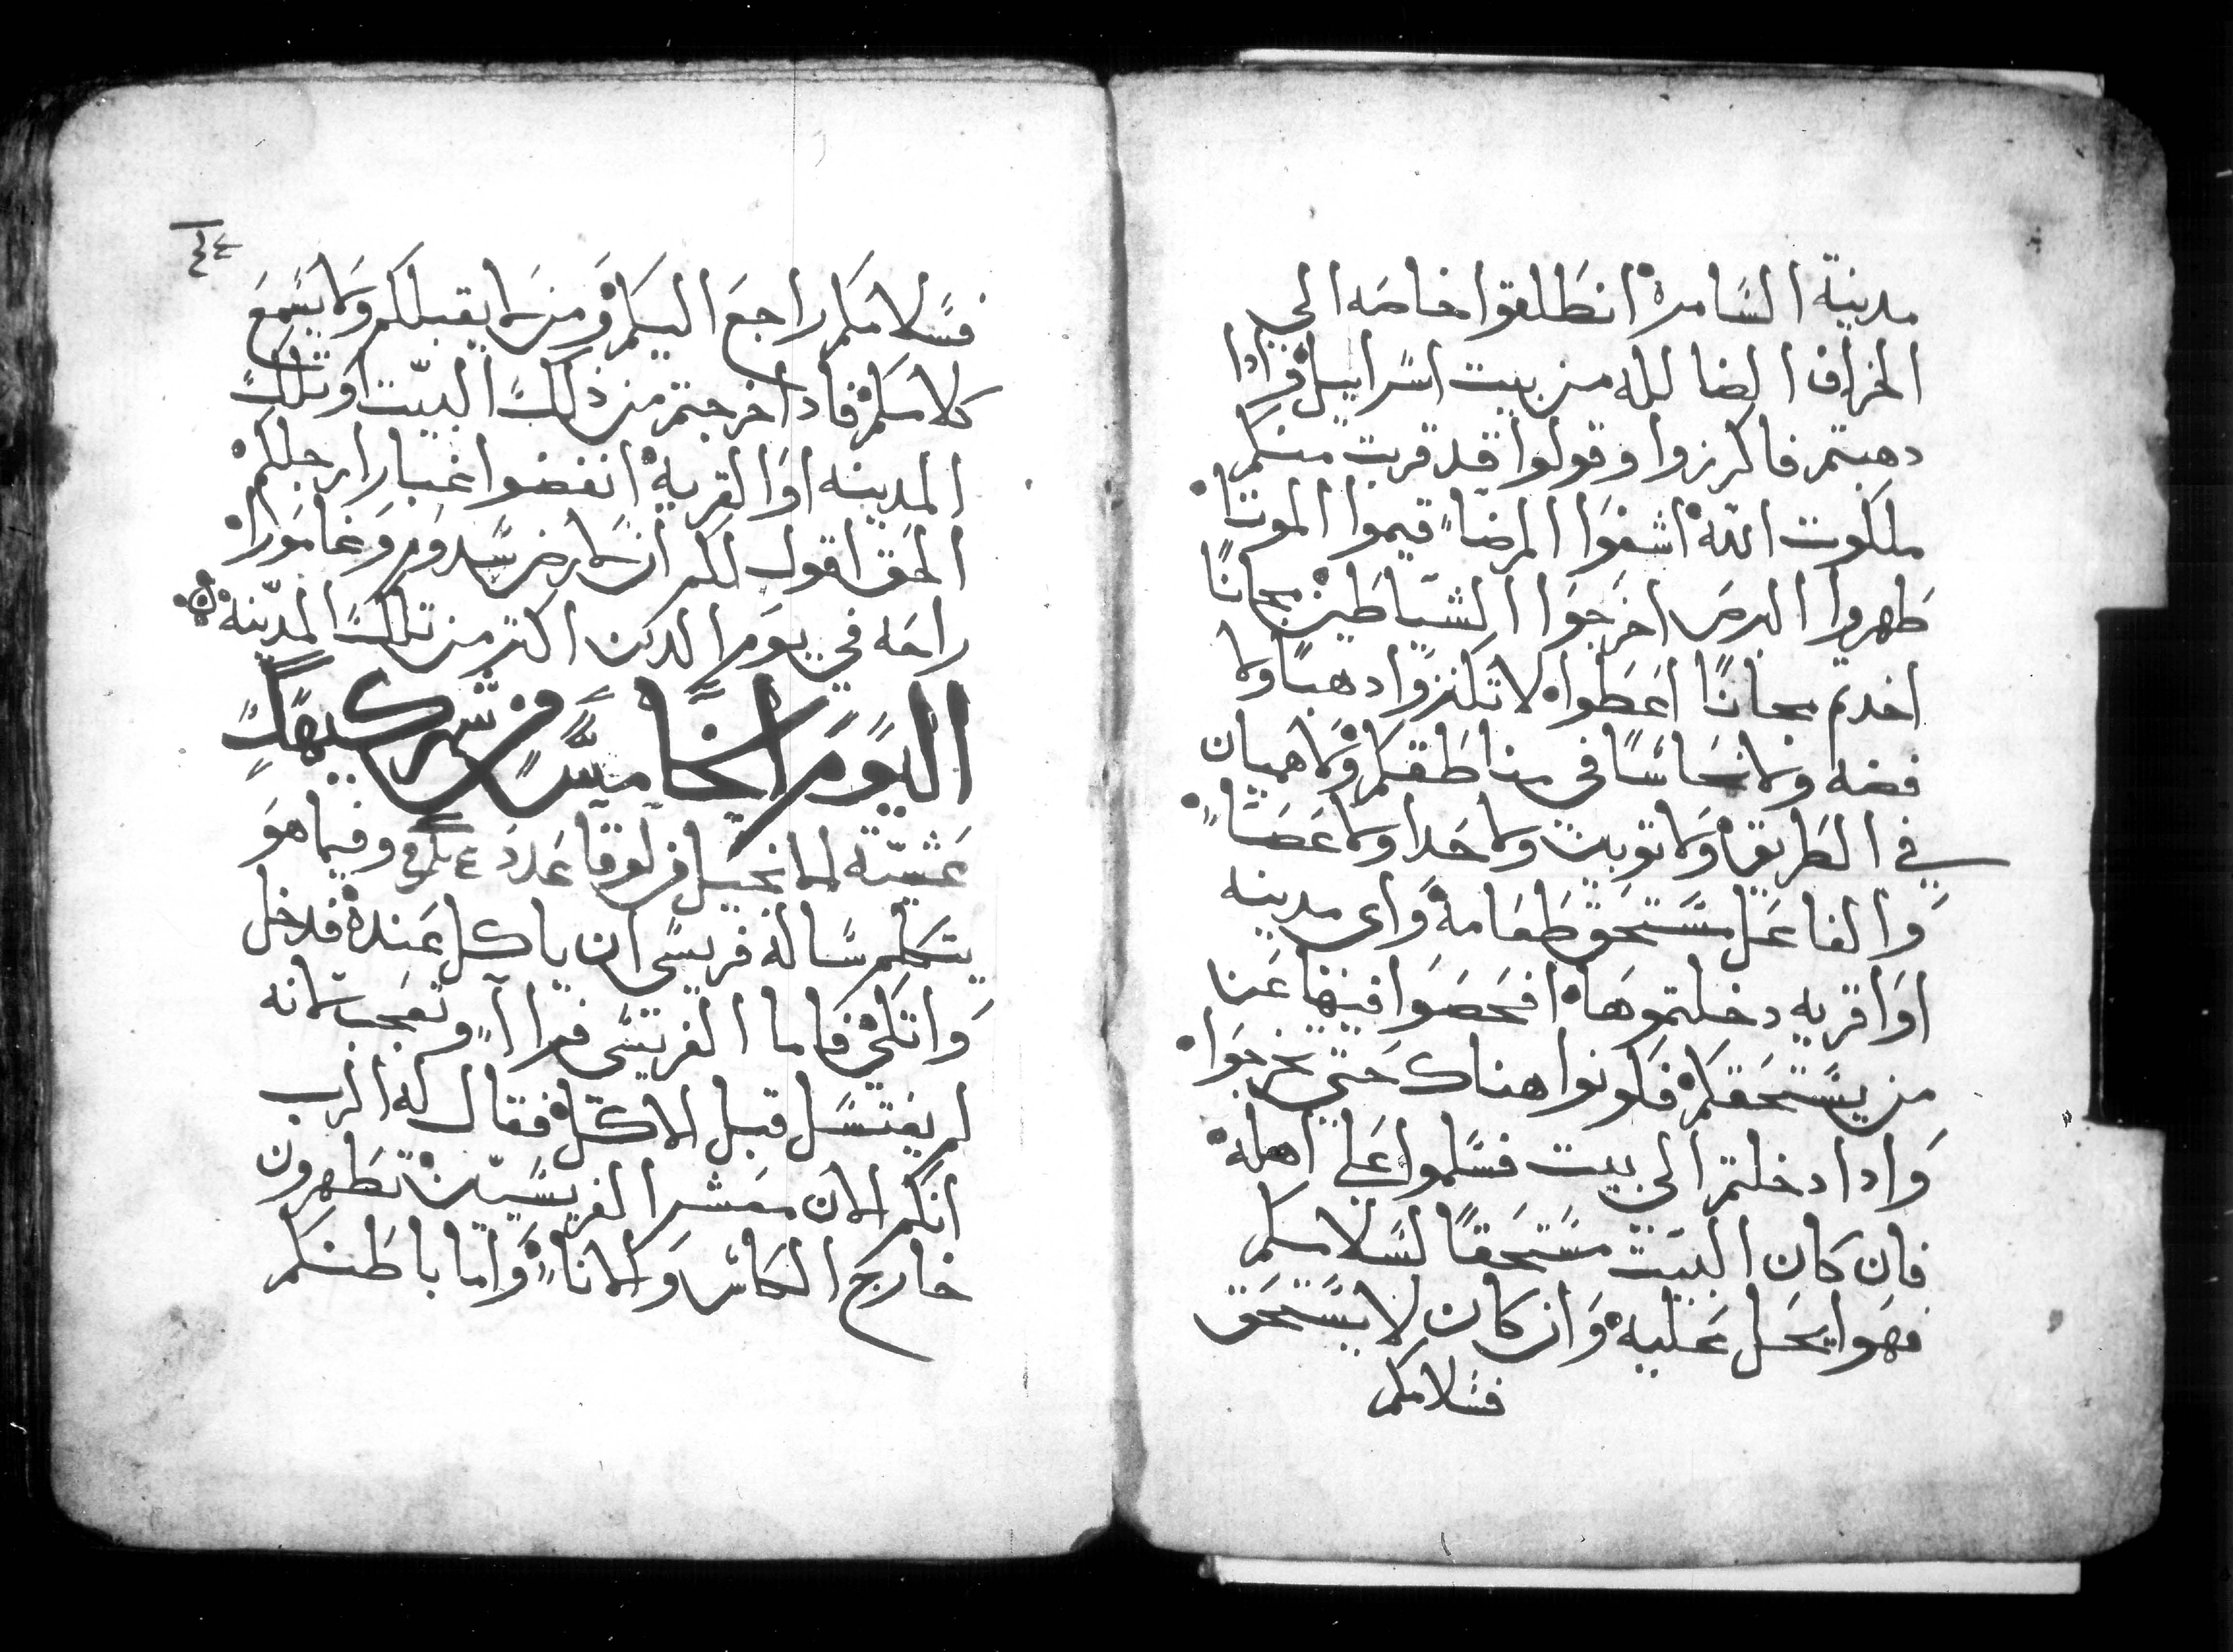 مدينة السامره انطلقوا خاصه الي
الخراف الضاله من بيت اسراييل فادا
دهبتم فاكرزوا وقولوا قد قربت منكم
ملكوت الله اشفوا المرضا قيموا الموتا
طهروا البرص اخرجوا الشياطين مجانًا
اخدتم مجانًا اعطوا لا تكنزوا دهبًا ولا
فضه ولا نحاسًا في مناطقكم ولا هميان
في الطريق ولا توبين ولا حدا ولا عصا
والفاعل مستحق طعامه واي مدينه
اوا قريه دخلتموها افحصوا فيها عنا
من يستحقكم فكونوا هناك حتي تخرجوا
وادا دخلتم الي بيت فسلموا علي اهله
فان كان البيت مستحقًا لسلامكم
فهوا يحل عليه وان كان لا يستحق
فسلامكم
٤٤
فسلامكم راجع اليكم ومن لا يقبلكم ولا يسمع
كلامكم فادا خرجتم من ذلك البيت او تلك
المدينه اوا القريه انفضوا غبار ارجلكم
الحق اقول لكم ان لارض سدوم وغامورا
راحه في يوم الدين اكتر من تلك المدينه
اليوم الخامس من شهر كيهك
عشية الانجيل من لوقا عدد وفيما هو
يتكلم ساله فريسي ان ياكل عنده فدخل
واتكي فاما الفريسي فراا وتعجب لانه
لم يغتسل قبل الاكل فقال له الرب
انكم الان معشر الفريسيين تطهرون
خارج الكاس والانا واما باطنكم